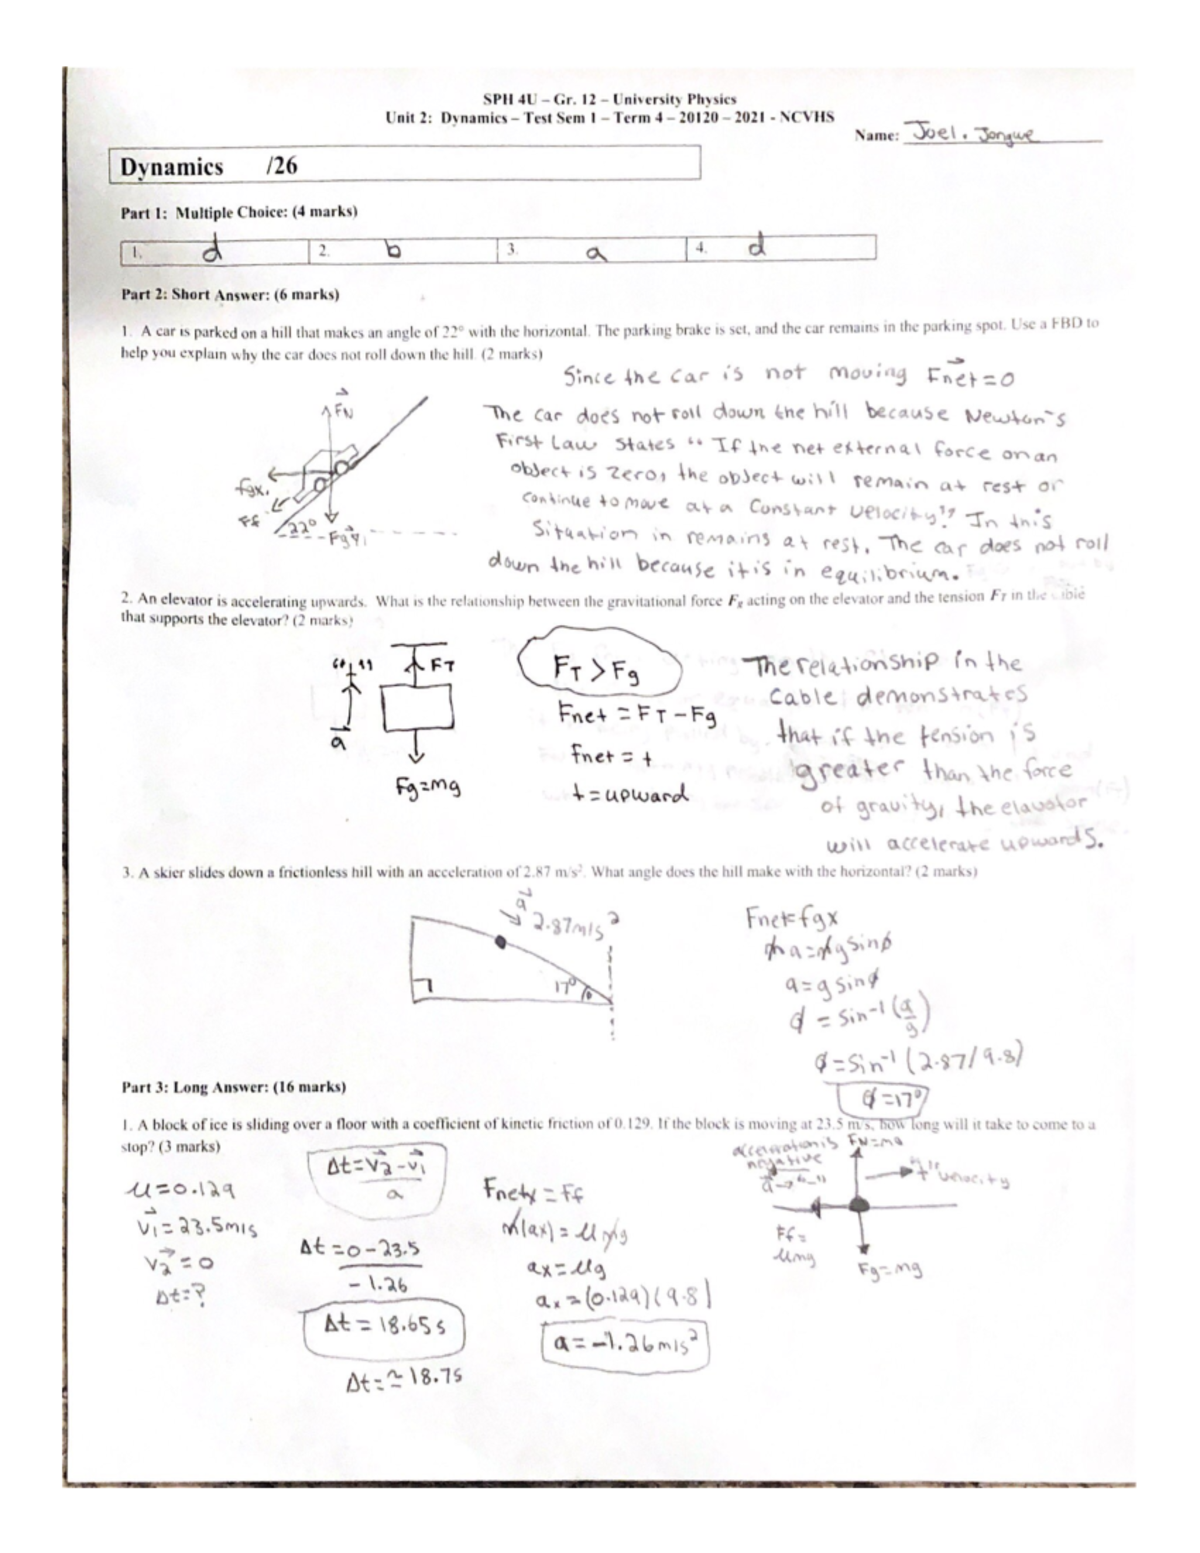 SPH 4U – Gr. 12 – University Physics
Unit 2: Dynamics – Test Sem 1 – Term 4 – 20120 – 2021 - NCVHS
Name: Joel. Jongwe
Dynamics /26
Part 1: Multiple Choice: (4 marks)
1. d 2. b 3. a 4. d
Part 2: Short Answer: (6 marks)
1. A car is parked on a hill that makes an angle of 22° with the horizontal. The parking brake is set, and the car remains in the parking spot. Use a FBD to
help you explain why the car does not roll down the hill. (2 marks)
Since the car is not moving F⃗net = 0
The car does not roll down the hill because Newton's
First Law states "If the net external force on an
object is zero, the object will remain at rest or
continue to move at a constant velocity" In this
situation in remains at rest. The car does not roll
down the hill because it is in equilibrium.
F⃗N
fgx
Ff
22°
2. An elevator is accelerating upwards. What is the relationship between the gravitational force Fg acting on the elevator and the tension FT in the cable
that supports the elevator? (2 marks)
"+"
a⃗
FT
Fg=mg
FT > Fg
Fnet = FT - Fg
Fnet = +
+ = upward
The relationship in the
cable demonstrates
that if the tension is
greater than the force
of gravity, the elavator
will accelerate upwards.
3. A skier slides down a frictionless hill with an acceleration of 2.87 m/s². What angle does the hill make with the horizontal? (2 marks)
a⃗
2.87m/s²
17°
Fnet=fgx
ma=mgsinϕ
a=gsinϕ
ϕ = Sin⁻¹(a/g)
ϕ=Sin⁻¹(2.87/9.8)
ϕ=17°
Part 3: Long Answer: (16 marks)
1. A block of ice is sliding over a floor with a coefficient of kinetic friction of 0.129. If the block is moving at 23.5 m/s, how long will it take to come to a
stop? (3 marks)
μ=0.129
v⃗1=23.5m/s
v⃗2=0
Δt=?
Δt=v⃗2-v⃗1
a
Δt=0-23.5
-1.26
Δt=18.65s
Δt=≃18.7s
Fnetx = Ff
m(ax)=μmg
ax=μg
ax=(0.129)(9.8)
a=-1.26m/s²
acceleration is
negative
a⃗→"-"
"+" velocity
Ff=
μmg
Fg=mg